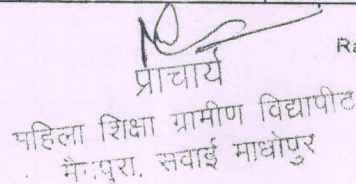 Ra
प्राचार्य
महिला शिक्षा ग्रामीण विद्यापीठ
सवाई माधोपुर